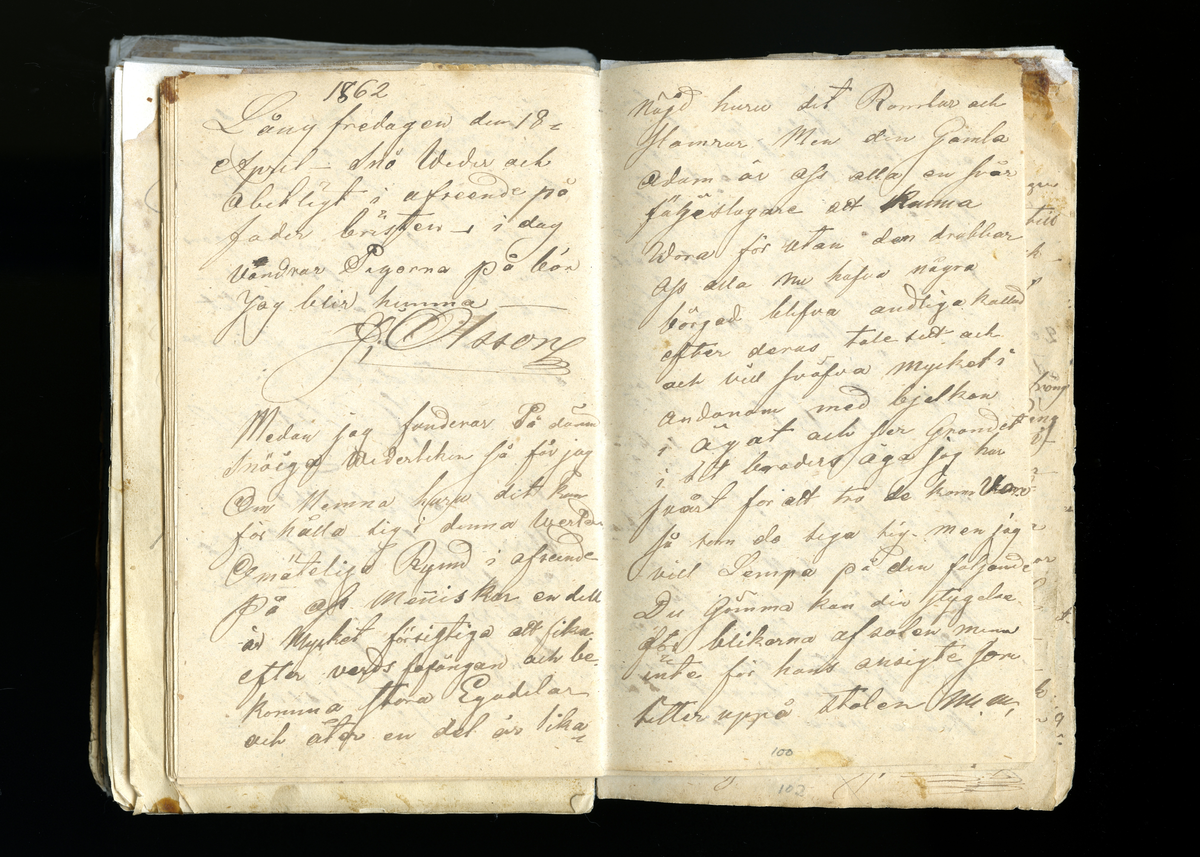 1862
Lång fredagen den 18=
April - Snö Weder och
obehligt i afseende på
foder bristen - i dag
vandrar Pigorna på bön
Jag blir hemma
J. Olsson
Medan jag funderar På
Snöiga Wederleken så får jag
Om Hemma huru dit kan
för hålla sig i denna Werlds
Omäteliga Rymd i afseende
På ofs Meniskor en dell
är Mycket försigtiga att fika
efter verds fåfängan och be
komma stora Egodelar
och åter en del är lika=
Nögd huru det Ramlar och
Slamrar - Men den Gamla
adam är ofs alla en svår
följeslagare att kunna
Wara för utan den drabbar
ofs alla nu hafva några
börjad blifva andliga kallad
efter deras tale sett och
och vill sväfva mycket i
andanom med bjelken
i ögat och ser Grandet
i sit broders öga jag har
svårt för att tro de kom Vara
så som de siga sig - men jag
vill Lempa på den följande
Du Gömma kan din stygelse
för blikarna af solen menn
inte för hans ansigte som
sitter uppå stolen M.M,
100
102